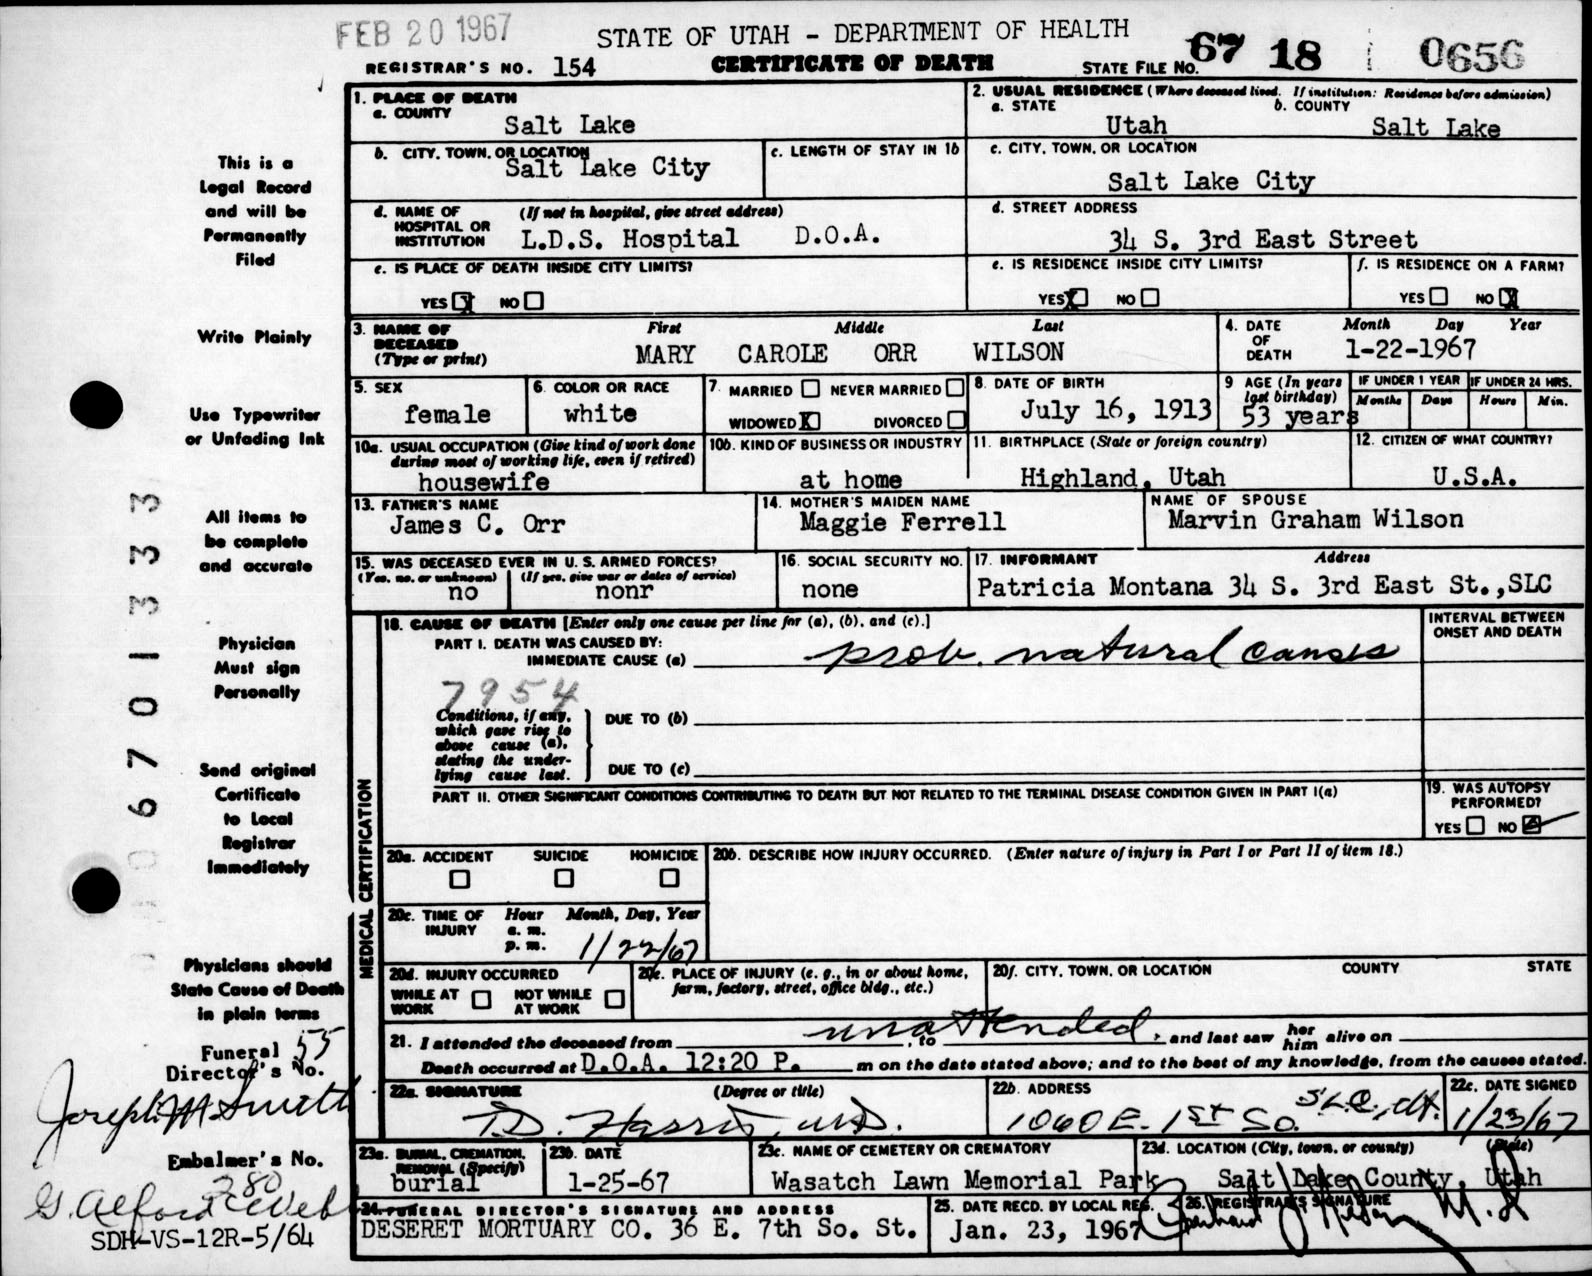 FEB 20 1967
STATE OF UTAH - DEPARTMENT OF HEALTH
REGISTRAR'S NO. 154 CERTIFICATE OF DEATH STATE FILE NO. 67 18 0656
1. PLACE OF DEATH
a. COUNTY
Salt Lake
2. USUAL RESIDENCE (Where deceased lived. If institution: Residence before admission)
a. STATE b. COUNTY
Utah Salt Lake
b. CITY, TOWN, OR LOCATION
Salt Lake City
c. LENGTH OF STAY IN 1b
c. CITY, TOWN, OR LOCATION
Salt Lake City
d. NAME OF HOSPITAL OR INSTITUTION (If not in hospital, give street address)
L.D.S. Hospital D.O.A.
d. STREET ADDRESS
34 S. 3rd East Street
e. IS PLACE OF DEATH INSIDE CITY LIMITS?
YES X NO
e. IS RESIDENCE INSIDE CITY LIMITS?
YES X NO
f. IS RESIDENCE ON A FARM?
YES NO X
3. NAME OF DECEASED (Type or print)
First Middle Last
MARY CAROLE ORR WILSON
4. DATE OF DEATH Month Day Year
1-22-1967
5. SEX
female
6. COLOR OR RACE
white
7. MARRIED NEVER MARRIED
WIDOWED X DIVORCED
8. DATE OF BIRTH
July 16, 1913
9 AGE (In years last birthday)
53 years
IF UNDER 1 YEAR IF UNDER 24 HRS.
Months Days Hours Min.
10a. USUAL OCCUPATION (Give kind of work done during most of working life, even if retired)
housewife
10b. KIND OF BUSINESS OR INDUSTRY
at home
11. BIRTHPLACE (State or foreign country)
Highland, Utah
12. CITIZEN OF WHAT COUNTRY?
U.S.A.
13. FATHER'S NAME
James C. Orr
14. MOTHER'S MAIDEN NAME
Maggie Ferrell
NAME OF SPOUSE
Marvin Graham Wilson
15. WAS DECEASED EVER IN U. S. ARMED FORCES?
(Yes, no, or unknown) (If yes, give war or dates of service)
no nonr
16. SOCIAL SECURITY NO.
none
17. INFORMANT Address
Patricia Montana 34 S. 3rd East St.,SLC
18. CAUSE OF DEATH [Enter only one cause per line for (a), (b), and (c).]
INTERVAL BETWEEN ONSET AND DEATH
PART I. DEATH WAS CAUSED BY:
IMMEDIATE CAUSE (a) prob. natural causes
7954
Conditions, if any, which gave rise to above cause (a), stating the underlying cause last.
DUE TO (b)
DUE TO (c)
PART II. OTHER SIGNIFICANT CONDITIONS CONTRIBUTING TO DEATH BUT NOT RELATED TO THE TERMINAL DISEASE CONDITION GIVEN IN PART I(a)
19. WAS AUTOPSY PERFORMED?
YES NO
MEDICAL CERTIFICATION
20a. ACCIDENT SUICIDE HOMICIDE
20b. DESCRIBE HOW INJURY OCCURRED. (Enter nature of injury in Part I or Part II of item 18.)
20c. TIME OF INJURY Hour Month, Day, Year
a. m.
p. m. 1/22/67
20d. INJURY OCCURRED
WHILE AT WORK NOT WHILE AT WORK
20e. PLACE OF INJURY (e. g., in or about home, farm, factory, street, office bldg., etc.)
20f. CITY, TOWN, OR LOCATION COUNTY STATE
21. I attended the deceased from unattended, to , and last saw her him alive on
Death occurred at D.O.A. 12:20 P. m on the date stated above; and to the best of my knowledge, from the causes stated.
22a. SIGNATURE (Degree or title)
22b. ADDRESS
1060 E. 1st So. S.L.C., Ut.
22c. DATE SIGNED
1/23/67
23a. BURIAL, CREMATION, REMOVAL (Specify)
burial
23b. DATE
1-25-67
23c. NAME OF CEMETERY OR CREMATORY
Wasatch Lawn Memorial Park
23d. LOCATION (City, town, or county) (State)
Salt Lake County, Utah
24. FUNERAL DIRECTOR'S SIGNATURE AND ADDRESS
DESERET MORTUARY CO. 36 E. 7th So. St.
25. DATE RECD. BY LOCAL REG.
Jan. 23, 1967
26. REGISTRAR'S SIGNATURE
This is a
Legal Record
and will be
Permanently
Filed
Write Plainly
Use Typewriter
or Unfading Ink
All items to
be complete
and accurate
Physician
Must sign
Personally
Send original
Certificate
to Local
Registrar
Immediately
Physicians should
State Cause of Death
in plain terms
Funeral 55
Director's No.
Joseph M Smith
Embalmer's No.
280
G. Alford Webb
SDH-VS-12R-5/64
6701333